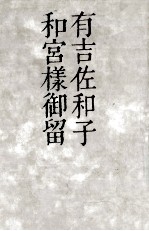 有吉佐和子
和宮樣御留